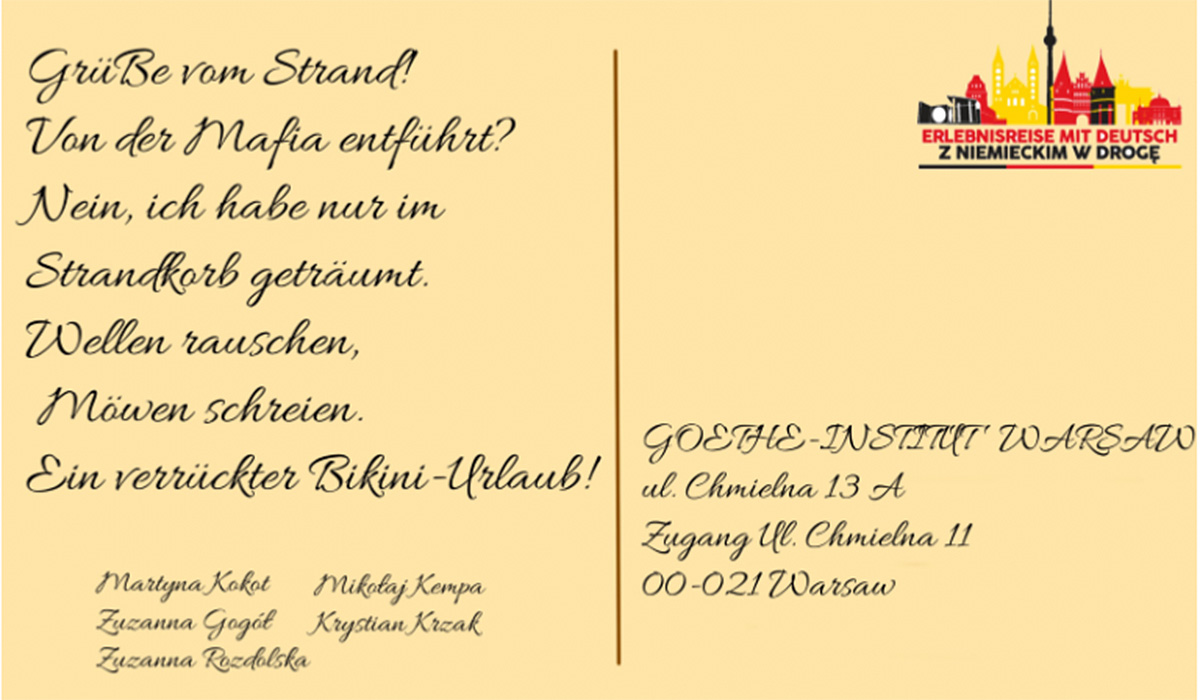 GrüBe vom Strand!
Von der Mafia entführt?
Nein, ich habe nur im
Strandkorb geträumt.
Wellen rauschen,
Möwen schreien.
Ein verrückter Bikini-Urlaub!
Martyna Kokot
Zuzanna Gogół
Zuzanna Rozdolska
Mikołaj Kempa
Krystian Krzak
ERLEBNISREISE MIT DEUTSCH
Z NIEMIECKIM W DROGĘ
GOETHE-INSTITUT' WARSAW
ul. Chmielna 13 A
Zugang Ul. Chmielna 11
00-021 Warsaw